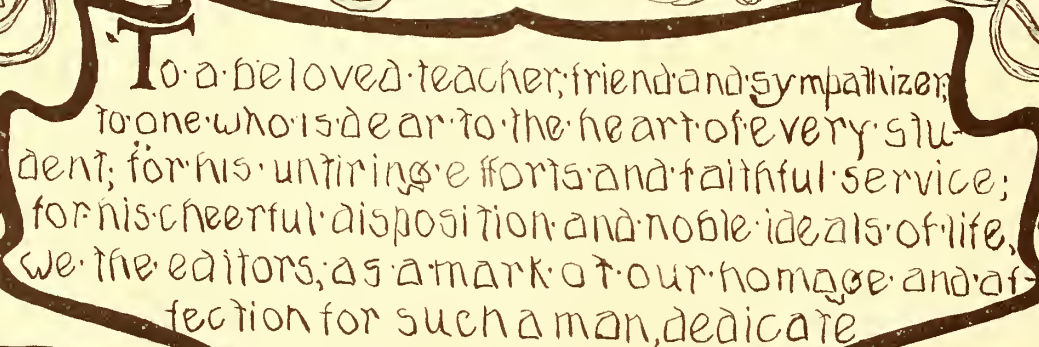 To·a·beloved·teacher,·friend·and·sympathizer,
to·one·who·is·dear·to·the·heart·of·every·stu-
dent; for·his·untiring·efforts·and·faithful·service;
for·his·cheerful·disposition·and·noble·ideals·of·life,
we·the·editors,·as·a·mark·of·our·homage·and·af-
fection for such a man, dedicate